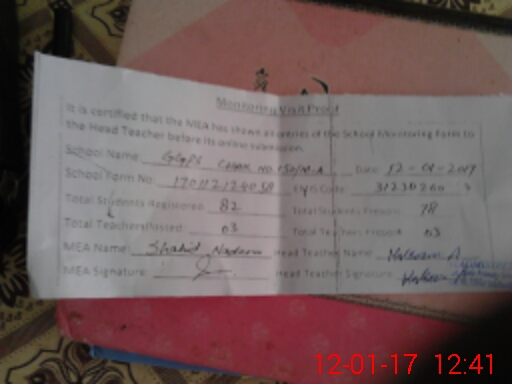 Monitoring Visit Proof
It is certified that the MEA has shown all entries of the School Monitoring Form to
the Head Teacher before its online submission.
School Name: GGPS Chak No Date: 12-01-2017
School Form No: EMIS Code:
Total Students Registered: 82 Total Students Present: 78
Total Teachers Posted: 03 Total Teachers Present: 03
MEA Name: Shahid Nadeem Head Teacher Name:
MEA Signature: Head Teacher Signature:
12-01-17 12:41